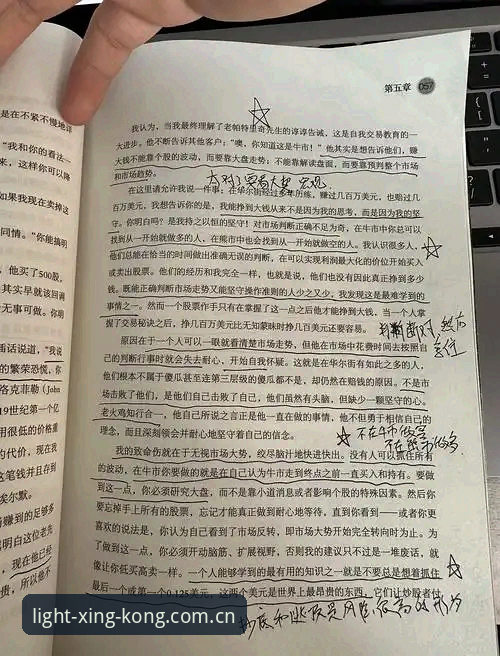 是在不紧不慢地详
"我和你的看法
来，这样你可以降
如果我现在卖掉这
同情。"你能搞明
他买了500股，
其实早就该回调
无事可做。你明
插话说道，"我说
的繁荣恐慌，你
洛克菲勒（John
19世纪第一个亿
用很低的价格重
代价，现在我
这笔钱并且存到
埃尔默。
得赚到的足够多
明白这位老先
，现在他已经
贵，所以他不
第五章 057
我认为，当我最终理解了老帕特里奇先生的谆谆告诫，这是自我交易教育的一
大进步。他不断告诉其他客户："噢，你知道这是牛市！"他其实是想告诉他们，赚
大钱不能靠个股的波动，而要靠大盘走势；不能靠解读盘面，而要靠预判整个市场
和市场趋势。
在这里请允许我说一件事：在华尔街经过多年历练，赚过几百万美元，也赔过几
百万美元，我想告诉你的是，我能挣到大钱从来不是因为我的思考，而是因为我的坚
守。你明白吗？是我持之以恒的坚守！对市场判断正确不足为奇，在牛市中你总可以
找到从一开始就做多的人，在熊市中也会找到从一开始就做空的人。我认识很多人，
他们总能在恰当的时间做出准确无误的判断，在可以实现利润最大化的价位开始买入
或卖出股票。他们的经历和我完全一样，也就是说，他们也没有因此真正挣到多少
钱。既能正确判断市场趋势又能坚守操作准则的人少之又少，我发现这是最难学到的
事情之一。然而一个股票作手只有在掌握了这一点之后他才能挣到大钱，当一个人掌
握了交易秘诀之后，挣几百万美元比无知蒙昧时挣几百美元还要容易。
原因在于一个人可以一眼就看清楚市场走势，但他在市场中花费时间去按照自
己的判断行事时就会失去耐心，开始自我怀疑。这就是在华尔街有如此之多的人，
他们根本不属于傻瓜甚至连第三层级的傻瓜都不是，却仍然在赔钱的原因。不是市
场击败了他们，是他们自己击败了自己，他们虽然有头脑，但缺少一颗坚守的心。
老火鸡知行合一，他自己所说之言正是他一直在做的事情，他不但勇于相信自己的
理念，而且深刻领会并耐心地坚守着自己的信念。
不在牛市做空
不在熊市做多
我的致命伤就在于无视市场大势，绞尽脑汁地快进快出。没有人可以抓住所有
的波动，在牛市你要做的就是在自己认为牛市走到终点之前一直买入和持有。要做
到这一点，你必须研究大盘，而不是靠小道消息或者影响个股的特殊因素。然后你
要忘掉手上所有的股票，忘记才能真正做到耐心地等待，直到你看到——或者你更
喜欢的说法是，你认为自己看到了市场反转，即市场大势开始完全转向时为止。为
了做到这一点，你必须开动脑筋、扩展视野，否则我的建议只不过是一堆废话，就
像让你低买高卖一样。一个人能够学到的最有用的知识之一就是不要总是想着抓住
最后一个或第一个0.125美元，这两个美元是世界上最昂贵的东西，它们让炒股者付
light-xing-kong.com.cn